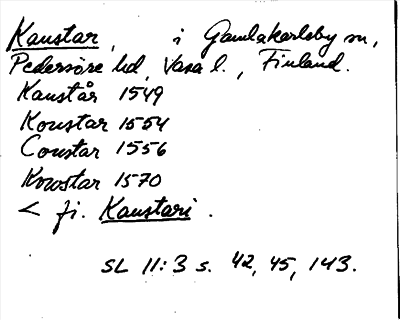 Kaustar, i Gamlakarleby sn,
Pedersöre hd, Vasa l., Finland.
Kaustår 1549
Koustar 1554
Coustar 1556
Kowstar 1570
< fi. Kaustari.
SL 11:3 s. 42, 45, 143.